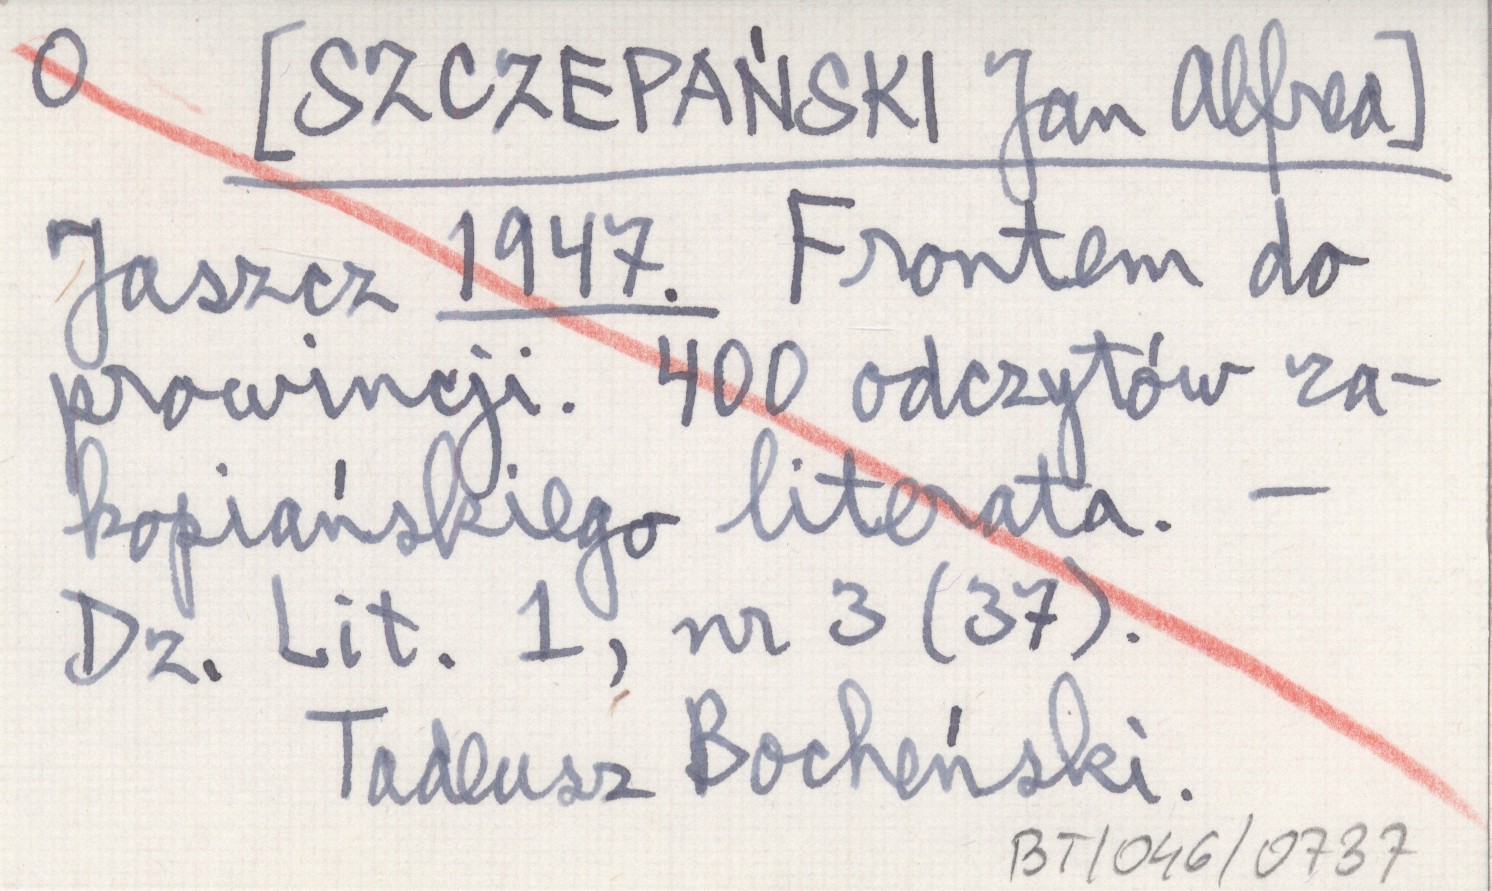 O [SZCZEPAŃSKI Jan Alfred]
Jaszcz 1947. Frontem do
prowincji. 400 odczytów za-
kopiańskiego literata. —
Dz. Lit. 1, nr 3 (37).
Tadeusz Bocheński.
BT/046/0737